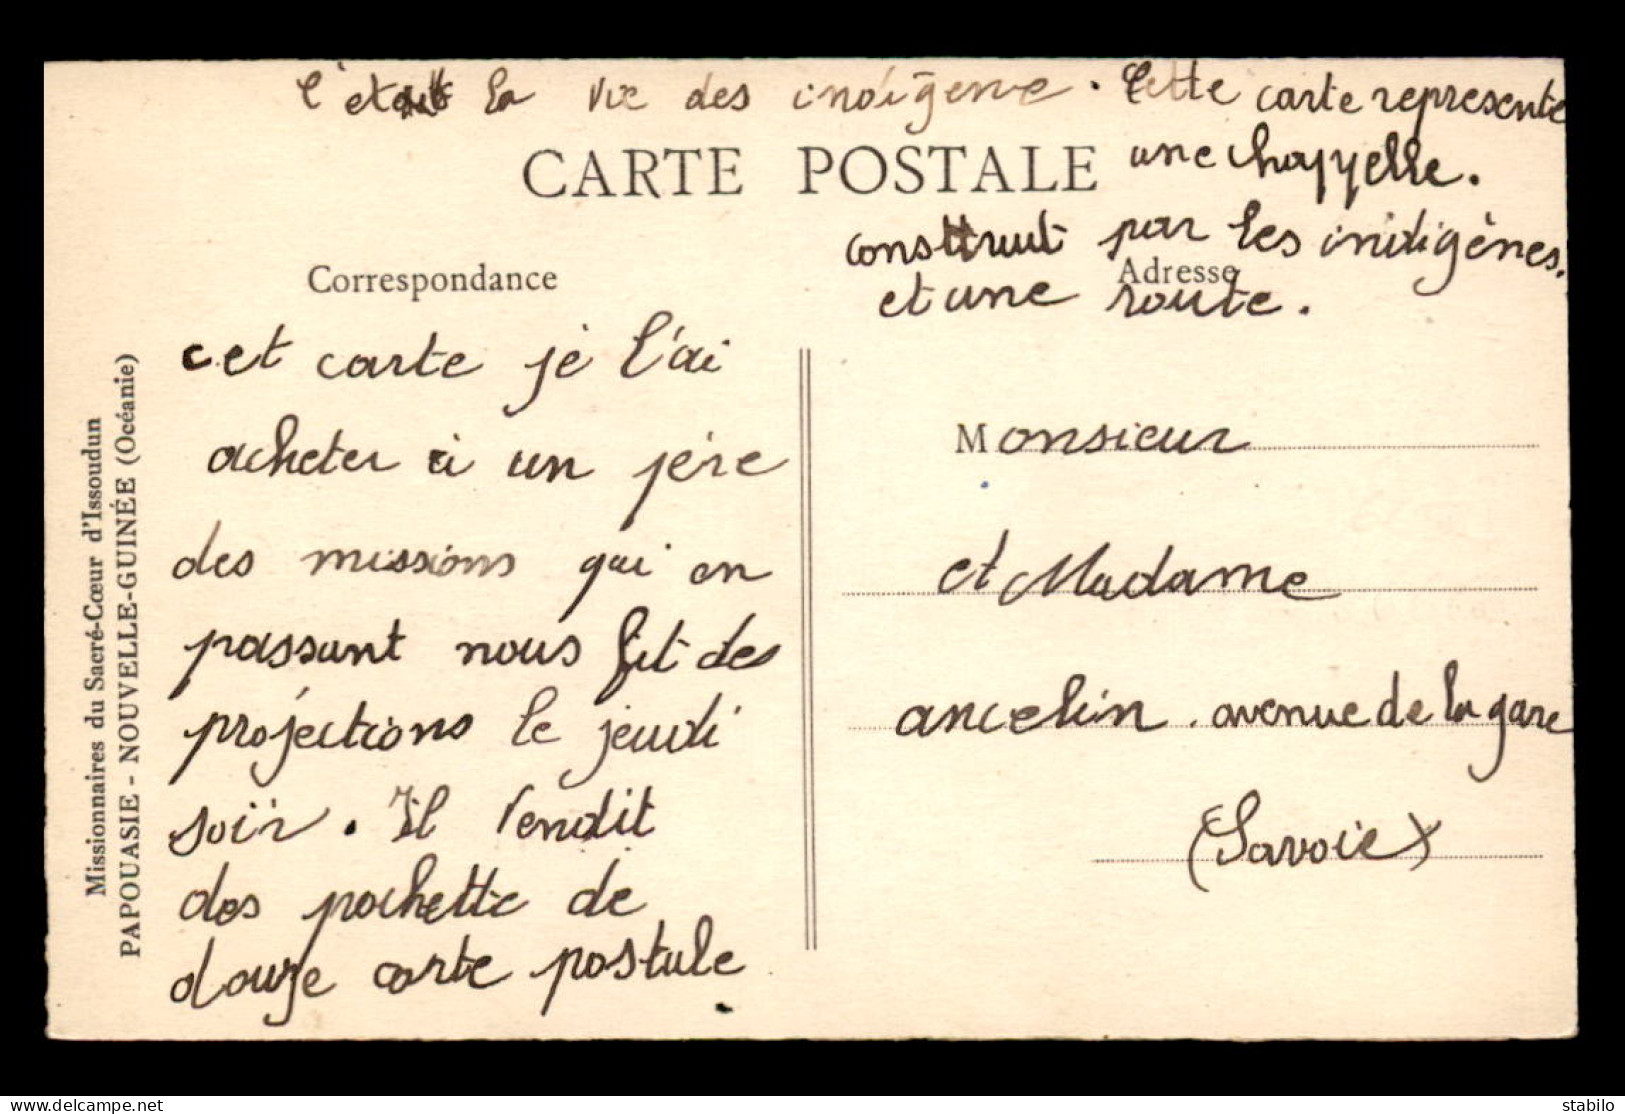 c'etait la vie des indigene. Cette carte represente
CARTE POSTALE
une chappelle.
construit par les indigènes.
Correspondance
Adresse
et une route.
cet carte je l'ai
acheter à un père
des missions qui en
passant nous fit des
projections le jeudi
soir. Il vendit
des pochette de
douze carte postale
Monsieur
et Madame
ancelin. avenue de la gare
(Savoie)
Missionnaires du Sacré-Cœur d'Issoudun
PAPOUASIE - NOUVELLE-GUINÉE (Océanie)
delcampe.net
stabilo